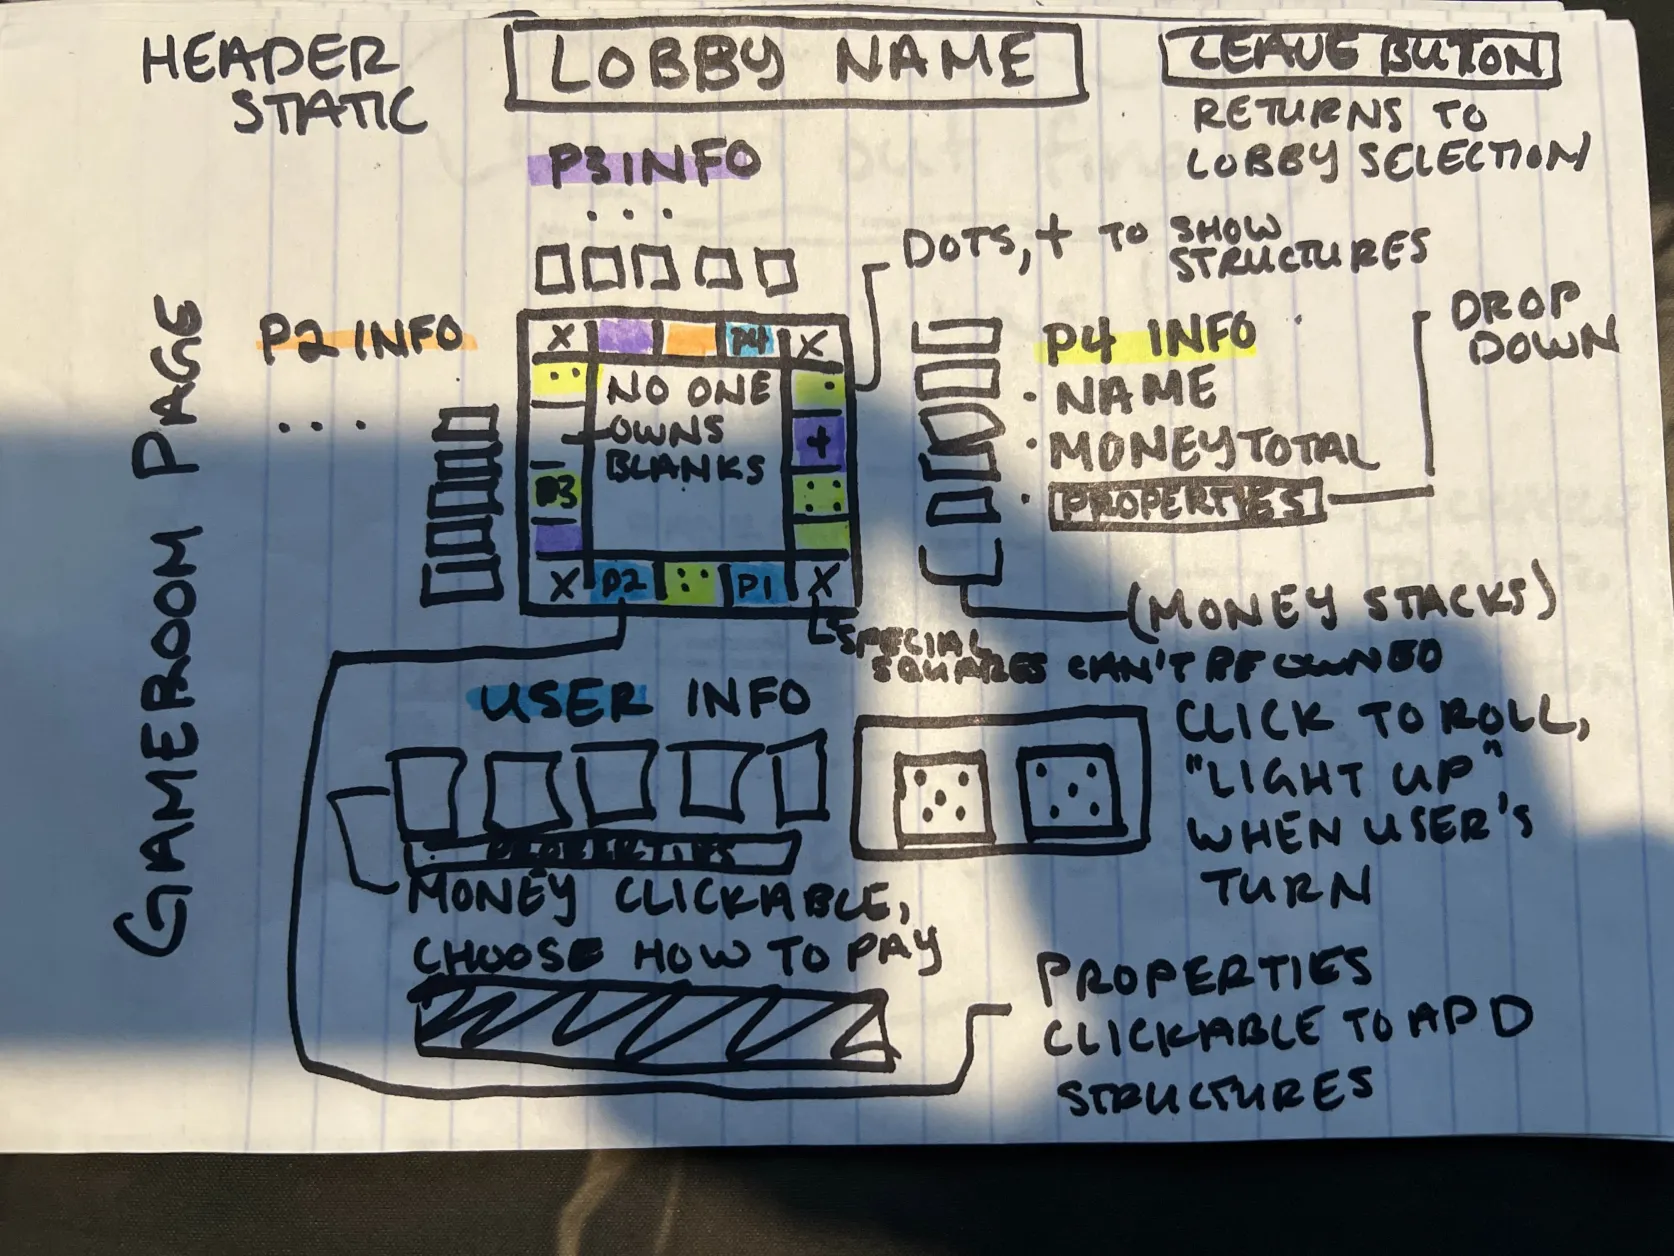 HEADER
STATIC
LOBBY NAME
LEAVE BUTTON
RETURNS TO
LOBBY SELECTION
P3 INFO
. . .
DOTS, + TO SHOW
STRUCTURES
GAMEROOM PAGE
P2 INFO
. . .
X
P4
X
NO ONE
OWNS
BLANKS
+
P3
X
P2
P1
X
P4 INFO
· NAME
· MONEY TOTAL
· PROPERTIES
DROP
DOWN
(MONEY STACKS)
SPECIAL
SQUARES CAN'T BE OWNED
USER INFO
PROPERTIES
MONEY CLICKABLE,
CHOOSE HOW TO PAY
CLICK TO ROLL,
"LIGHT UP"
WHEN USER'S
TURN
PROPERTIES
CLICKABLE TO ADD
STRUCTURES